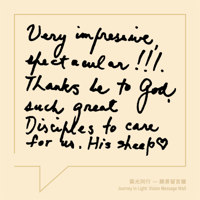 Very impressive,
spectacular !!!.
Thanks be to God,
such great
Disciples to care
for us. His sheep♡
Journey in Light: Visitor Message Wall